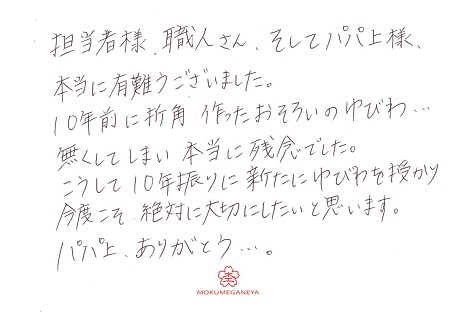 担当者様、職人さん、そしてパパ上様、
本当に有難うございました。
10年前に折角 作ったおそろいのゆびわ…
無くしてしまい 本当に残念でした。
こうして10年振りに新たにゆびわを授かり
今度こそ、絶対に大切にしたいと思います。
パパ上、ありがとう…。
MOKUMEGANEYA